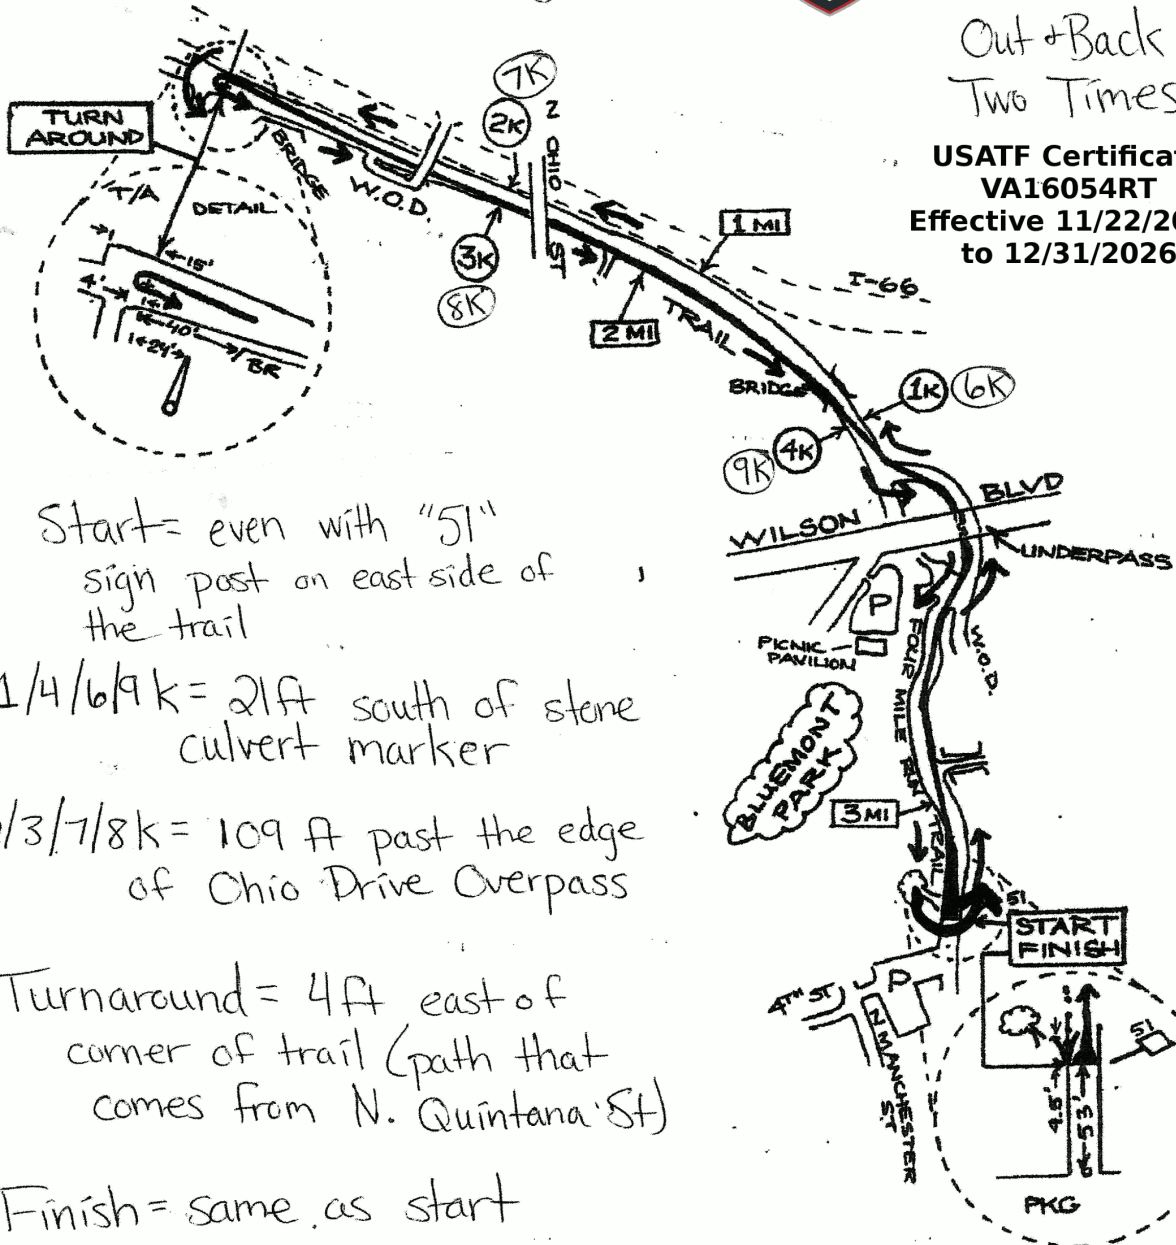 Out + Back
Two Times
USATF Certificat
VA16054RT
Effective 11/22/20
to 12/31/2026
7K
2K
N OHIO ST
TURN
AROUND
BRIDGE
W.O.D.
T/A
DETAIL
15'
4'
1'
40'
24'
BR
3K
8K
1 MI
I-66
2 MI
TRAIL
BRIDGE
1K
6K
4K
9K
WILSON BLVD
UNDERPASS
P
PICNIC
PAVILION
W.O.D.
FOUR MILE RUN TRAIL
BLUEMONT
PARK
3 MI
51
START
FINISH
4TH ST
P
N. MANCHESTER
ST
51
4.5'
53'
PKG
Start = even with "51"
sign post on east side of
the trail
1/4/6/9 k = 21ft south of stone
culvert marker
/3/7/8k = 109 ft past the edge
of Ohio Drive Overpass
Turnaround = 4ft east of
corner of trail (path that
comes from N. Quintana St)
Finish = same as start